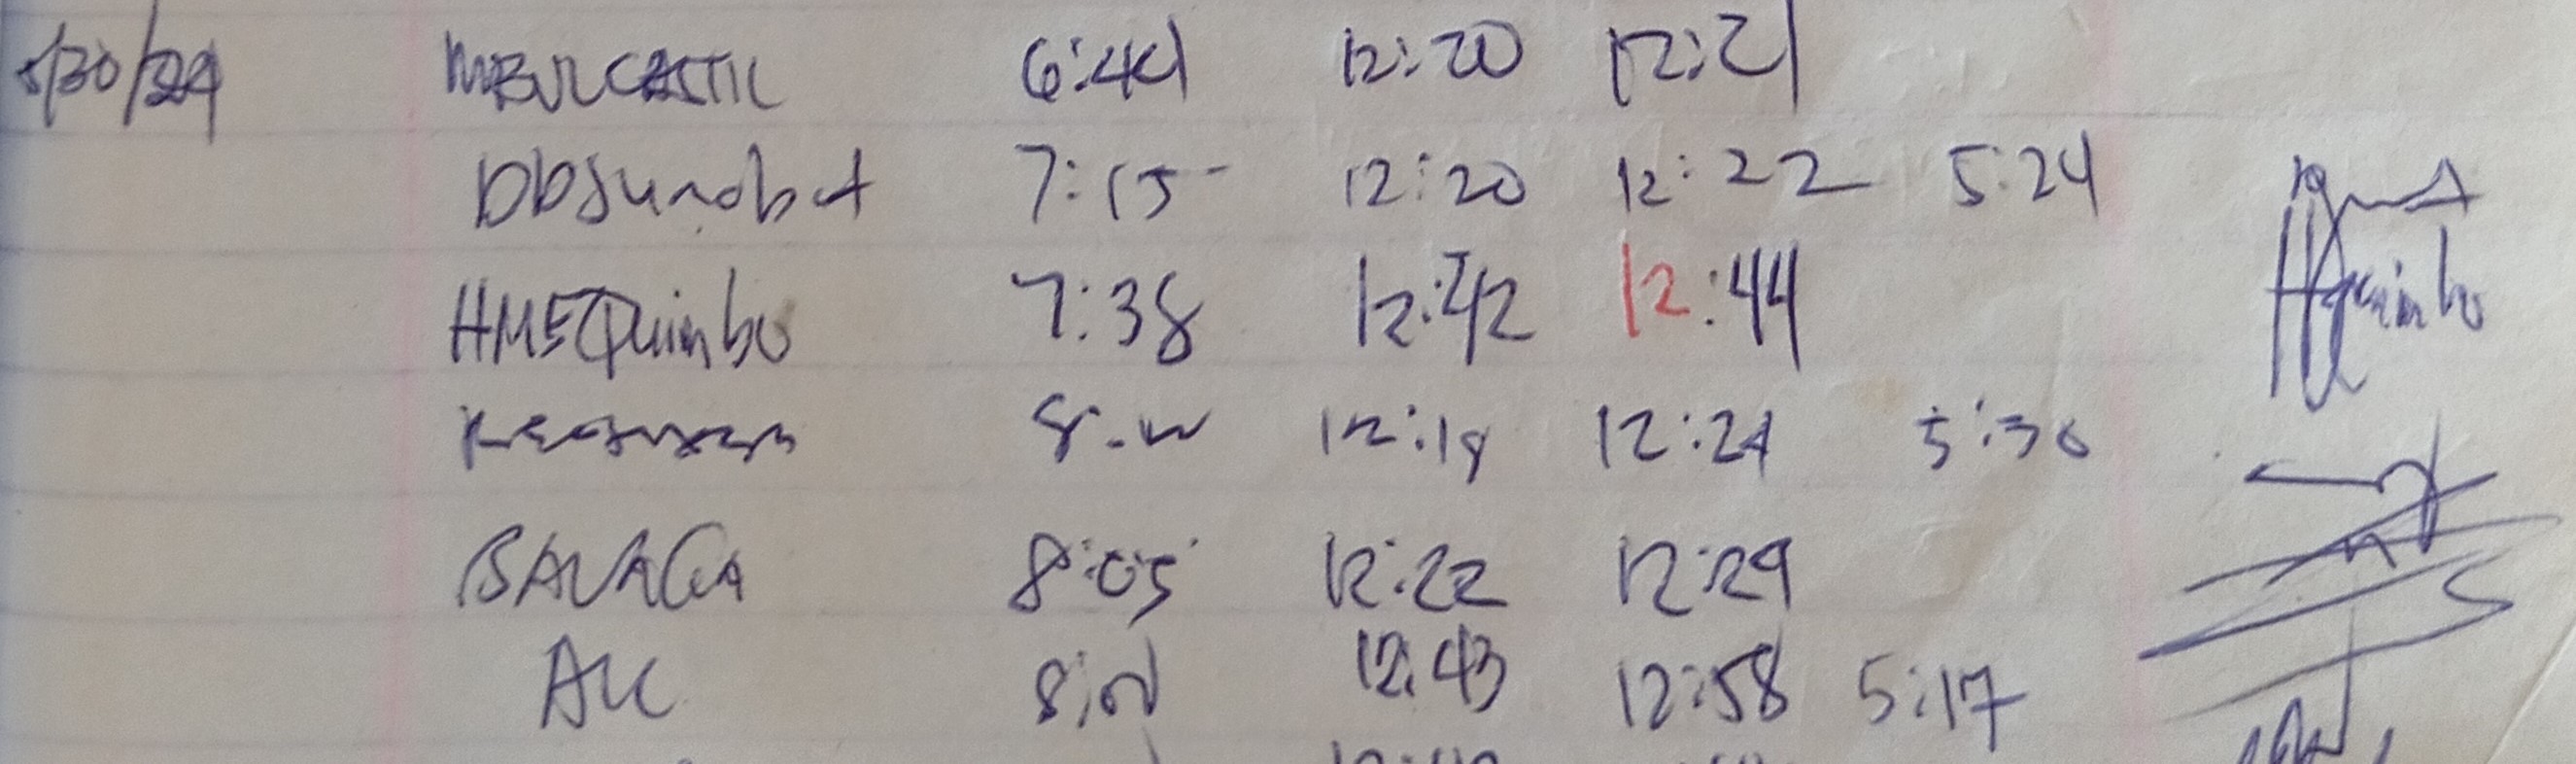 5/30/24 MBVLCASTIL 6:44 12:20 12:21
DDSunobat 7:15 12:20 12:22 5:24
HMEQuimbo 7:38 12:42 12:44 HQuimbo
12:18 12:24 5:30
BALAGA 8:05 12:22 12:29
ALC 12:43 12:58 5:17